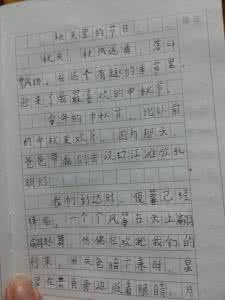 秋天里的节日
秋天，秋风送爽，落叶
飘飘，在这个有趣的季节里，
迎来了我最喜欢的中秋节。
今年的中秋节，比以前
的中秋更欢乐，因为那天，
爸爸带着我们去汉口江滩放孔
明灯。
我们到达时，夜幕已经
降临，一个个风筝在天上翩
翩起舞，仿佛在欢迎我们的
到来。当天色暗下来时，星
星在云月旁边眨着眼睛，月